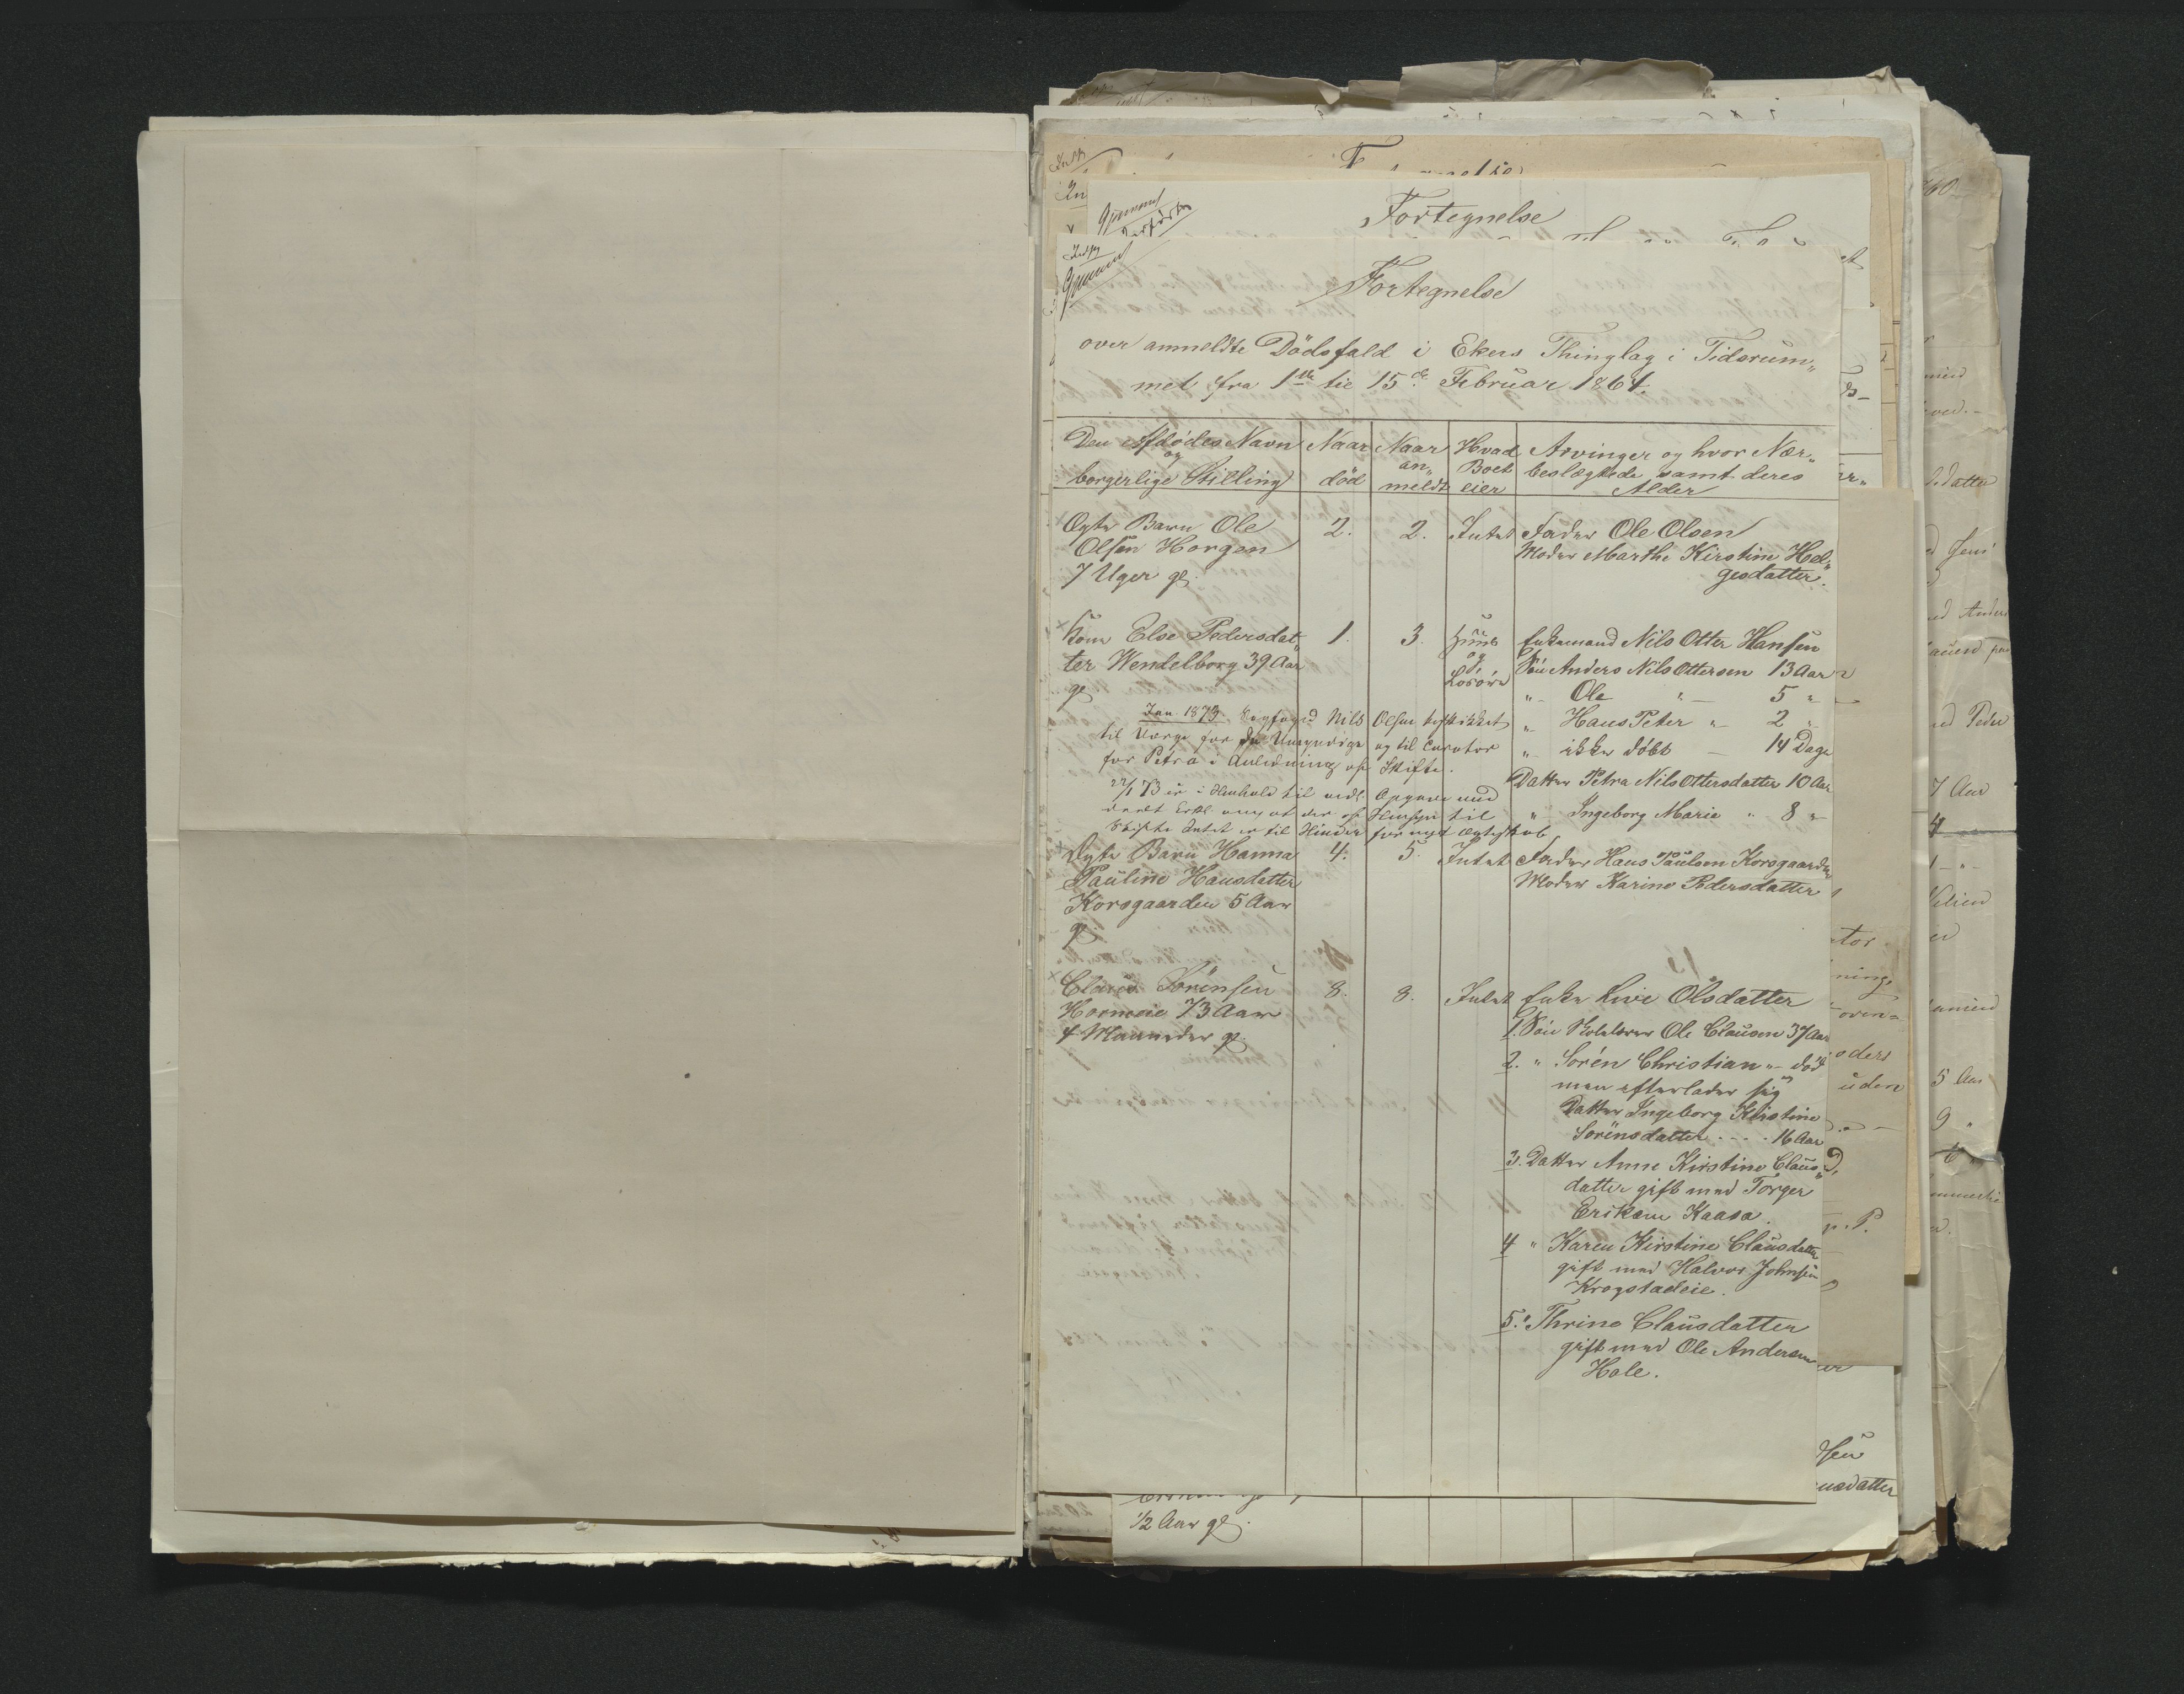 Fortegnelse
Fortegnelse
over anmeldte Dödsfald i Ekers Thinglag i Tidsrum„
met fra 1ste til 15de Februar 1864.
Den Afdödes Navn og borgerlige Stilling
Naar död
Naar an„ meldt
Hvad Boet eier
Arvinger og hvor Nær„ beslægtede samt deres Alder
Ægte Barn Ole 2. 2. Intet Fader Ole Olsen
Olsen Horgen Moder Marthe Kirstine Hel„
7 Uger gl. gesdatter.
Kone Else Pedersdat„ 1. 3. Huus Enkemand Nils Otter Hansen
ter Wendelborg 39 Aar og Sön Anders Nils Ottersen 13 Aar
gl Lösöre „ Ole „ — 5 „
Jan. 1873. Nils Olsen beskikket „ Hans Peter „ 2 „
til Værge for de Umyndige og til Curator „ ikke döbt — 14 Dage
for Petra i Anledning af Skifte.
Datter Petra Nils Ottersdatter 10 Aar
22/1 73 er i Henhold til Opgave med
at der af Hensyn til „ Ingeborg Marie „ 8 „
Skifte Intet er til Hinder for nyt Ægteskab
Ægte Barn Hanna 4. 5. Intet Fader Hans Paulsen Korsgaarden
Pauline Hansdatter Moder Karine Pedersdatter
Korsgaarden 5 Aar
gl
Claus Sörensen 8. 8. Intet Enke Live Olsdatter
Horneie 73 Aar 1. Sön Skolelærer Ole Clausen 37 Aar
4 Maaneder gl. 2. „ Sören Christian „— död
men efterlader sig
Datter Ingeborg Kirstine
Sörensdatter . . . 16 Aar
3. Datter Anne Kirstine Claus„
datter gift med Torger
Eriksen Kaasa.
4 „ Karen Kirstine Clausdatter
gift med Halvor Johnsen
Krogstadeie.
5. „ Thrine Clausdatter
gift med Ole Andersen
Hole.
1/2 Aar gl.